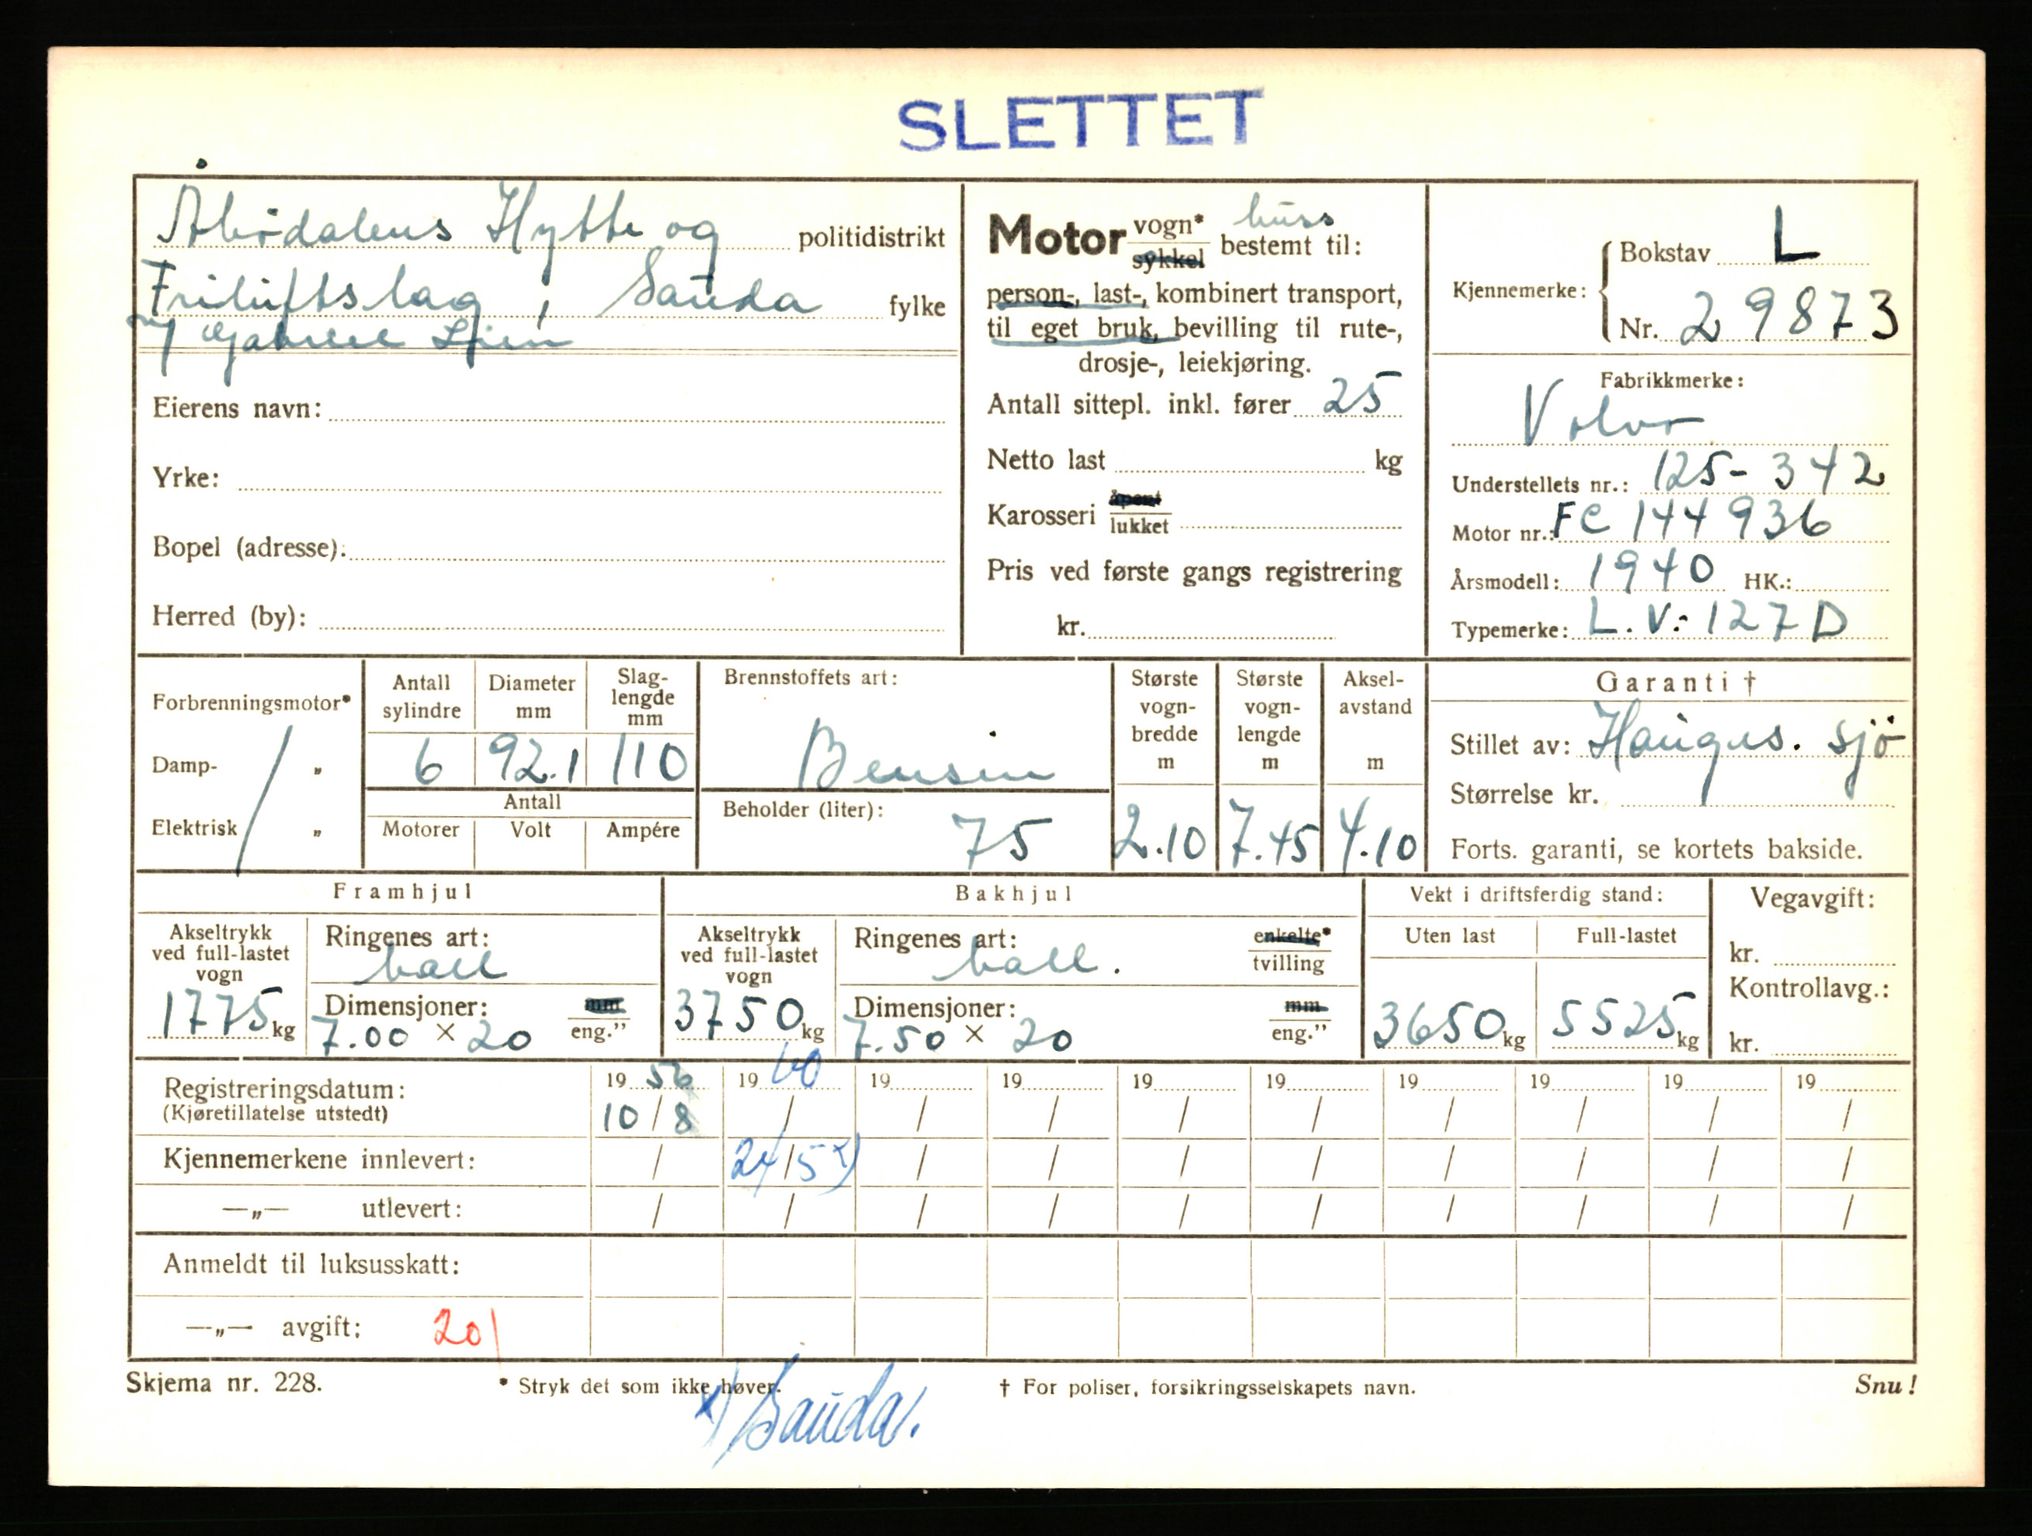 SLETTET
Åbødalens Hytte og politidistrikt
Friluftslag, Sauda fylke
v/ Gabriel Lien
Eierens navn:
Yrke:
Bopel (adresse):
Herred (by):
Motor vogn* buss
sykkel bestemt til:
person-, last-, kombinert transport,
til eget bruk, bevilling til rute-,
drosje-, leiekjøring.
Antall sittepl. inkl. fører 25
Netto last kg
Karosseri åpent
lukket
Pris ved første gangs registrering
kr.
Kjennemerke: Bokstav L
Nr. 29873
Fabrikkmerke:
Volvo
Understellets nr.: 125-342
Motor nr.: FC 144936
Årsmodell: 1940 HK.:
Typemerke: L.V.: 127 D
Forbrenningsmotor*
Damp- „
Elektrisk „
Antall sylindre Diameter mm Slag-lengde mm
6 92.1 110
Antall
Motorer Volt Ampére
Brennstoffets art:
Bensin
Beholder (liter):
75
Største vogn-bredde m
2.10
Største vogn-lengde m
7.45
Aksel-avstand m
4.10
Garanti †
Stillet av: Hauges. Sjø
Størrelse kr.
Forts. garanti, se kortets bakside.
Framhjul
Akseltrykk ved full-lastet vogn
1775 kg
Ringenes art:
ball
Dimensjoner: mm
7.00 x 20 eng.”
Bakhjul
Akseltrykk ved full-lastet vogn
3750 kg
Ringenes art: enkelte*
ball. tvilling
Dimensjoner: mm
7.50 x 20 eng.”
Vekt i driftsferdig stand:
Uten last Full-lastet
3650 kg 5525 kg
Vegavgift:
kr.
Kontrollavg.:
kr.
Registreringsdatum: 19 56 19 60 19 19 19 19 19 19 19 19
(Kjøretillatelse utstedt) 10/8 / / / / / / / / /
Kjennemerkene innlevert: / 24/5 x) / / / / / / / /
—„— utlevert: / / / / / / / / / /
Anmeldt til luksusskatt:
—„— avgift: 20/
Skjema nr. 228. * Stryk det som ikke høver. † For poliser, forsikringsselskapets navn. Snu!
x) Sauda.